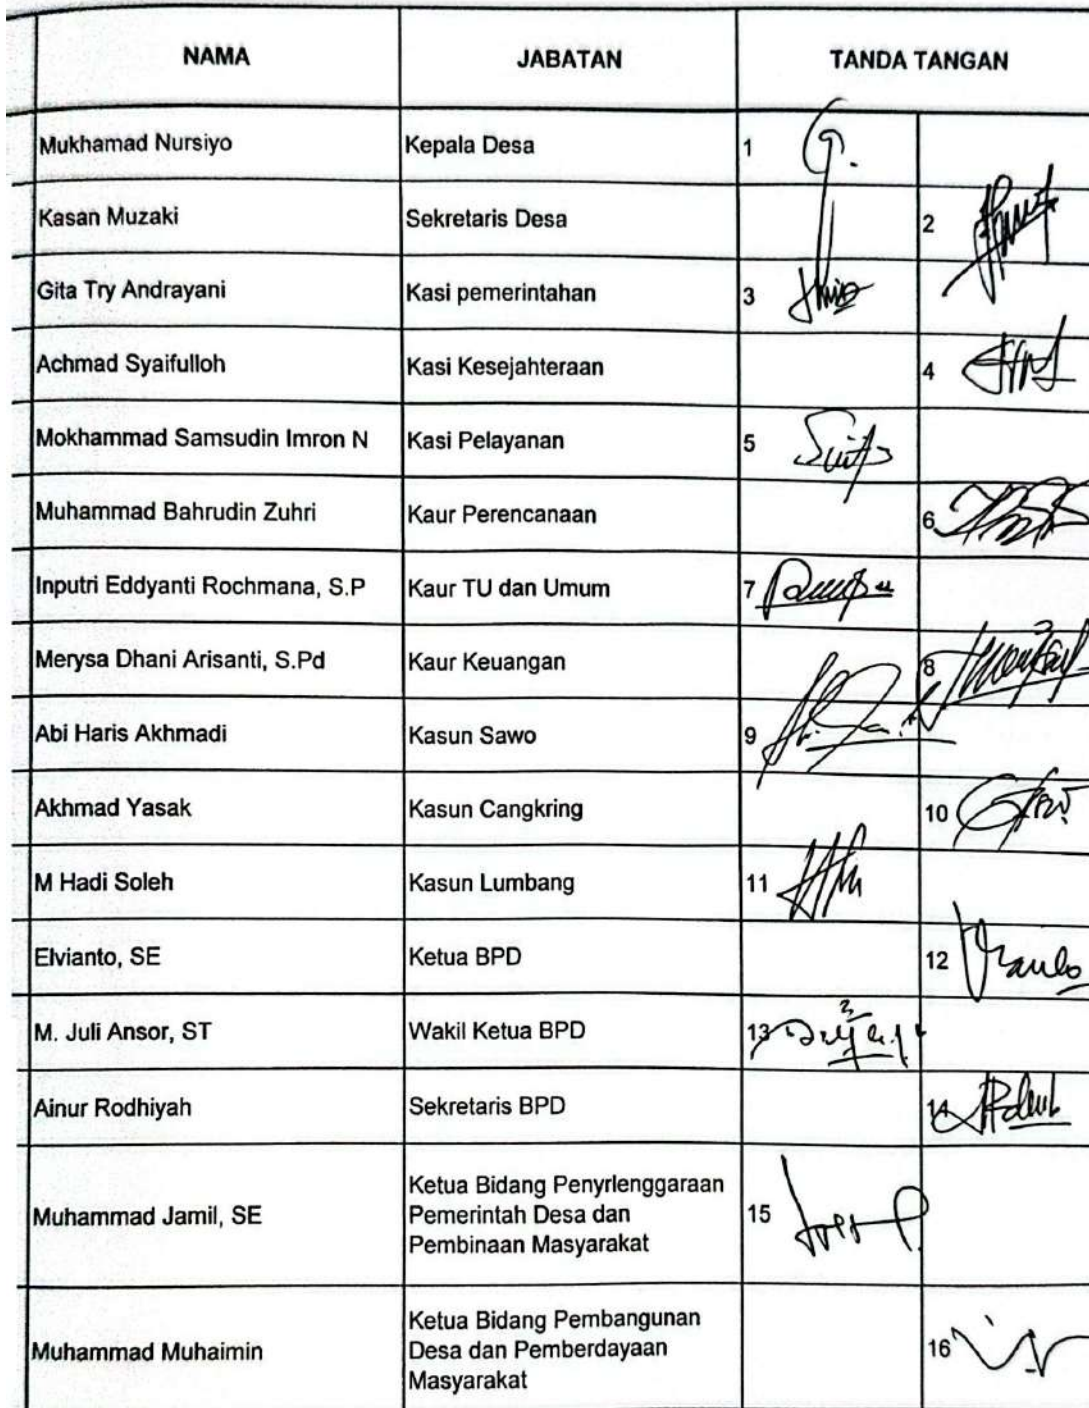 NAMA JABATAN TANDA TANGAN
Mukhamad Nursiyo Kepala Desa 1
Kasan Muzaki Sekretaris Desa 2
Gita Try Andrayani Kasi pemerintahan 3
Achmad Syaifulloh Kasi Kesejahteraan 4
Mokhammad Samsudin Imron N Kasi Pelayanan 5
Muhammad Bahrudin Zuhri Kaur Perencanaan 6
Inputri Eddyanti Rochmana, S.P Kaur TU dan Umum 7
Merysa Dhani Arisanti, S.Pd Kaur Keuangan 8
Abi Haris Akhmadi Kasun Sawo 9
Akhmad Yasak Kasun Cangkring 10
M Hadi Soleh Kasun Lumbang 11
Elvianto, SE Ketua BPD 12
M. Juli Ansor, ST Wakil Ketua BPD 13
Ainur Rodhiyah Sekretaris BPD 14
Muhammad Jamil, SE Ketua Bidang Penyrlenggaraan
Pemerintah Desa dan
Pembinaan Masyarakat 15
Muhammad Muhaimin Ketua Bidang Pembangunan
Desa dan Pemberdayaan
Masyarakat 16